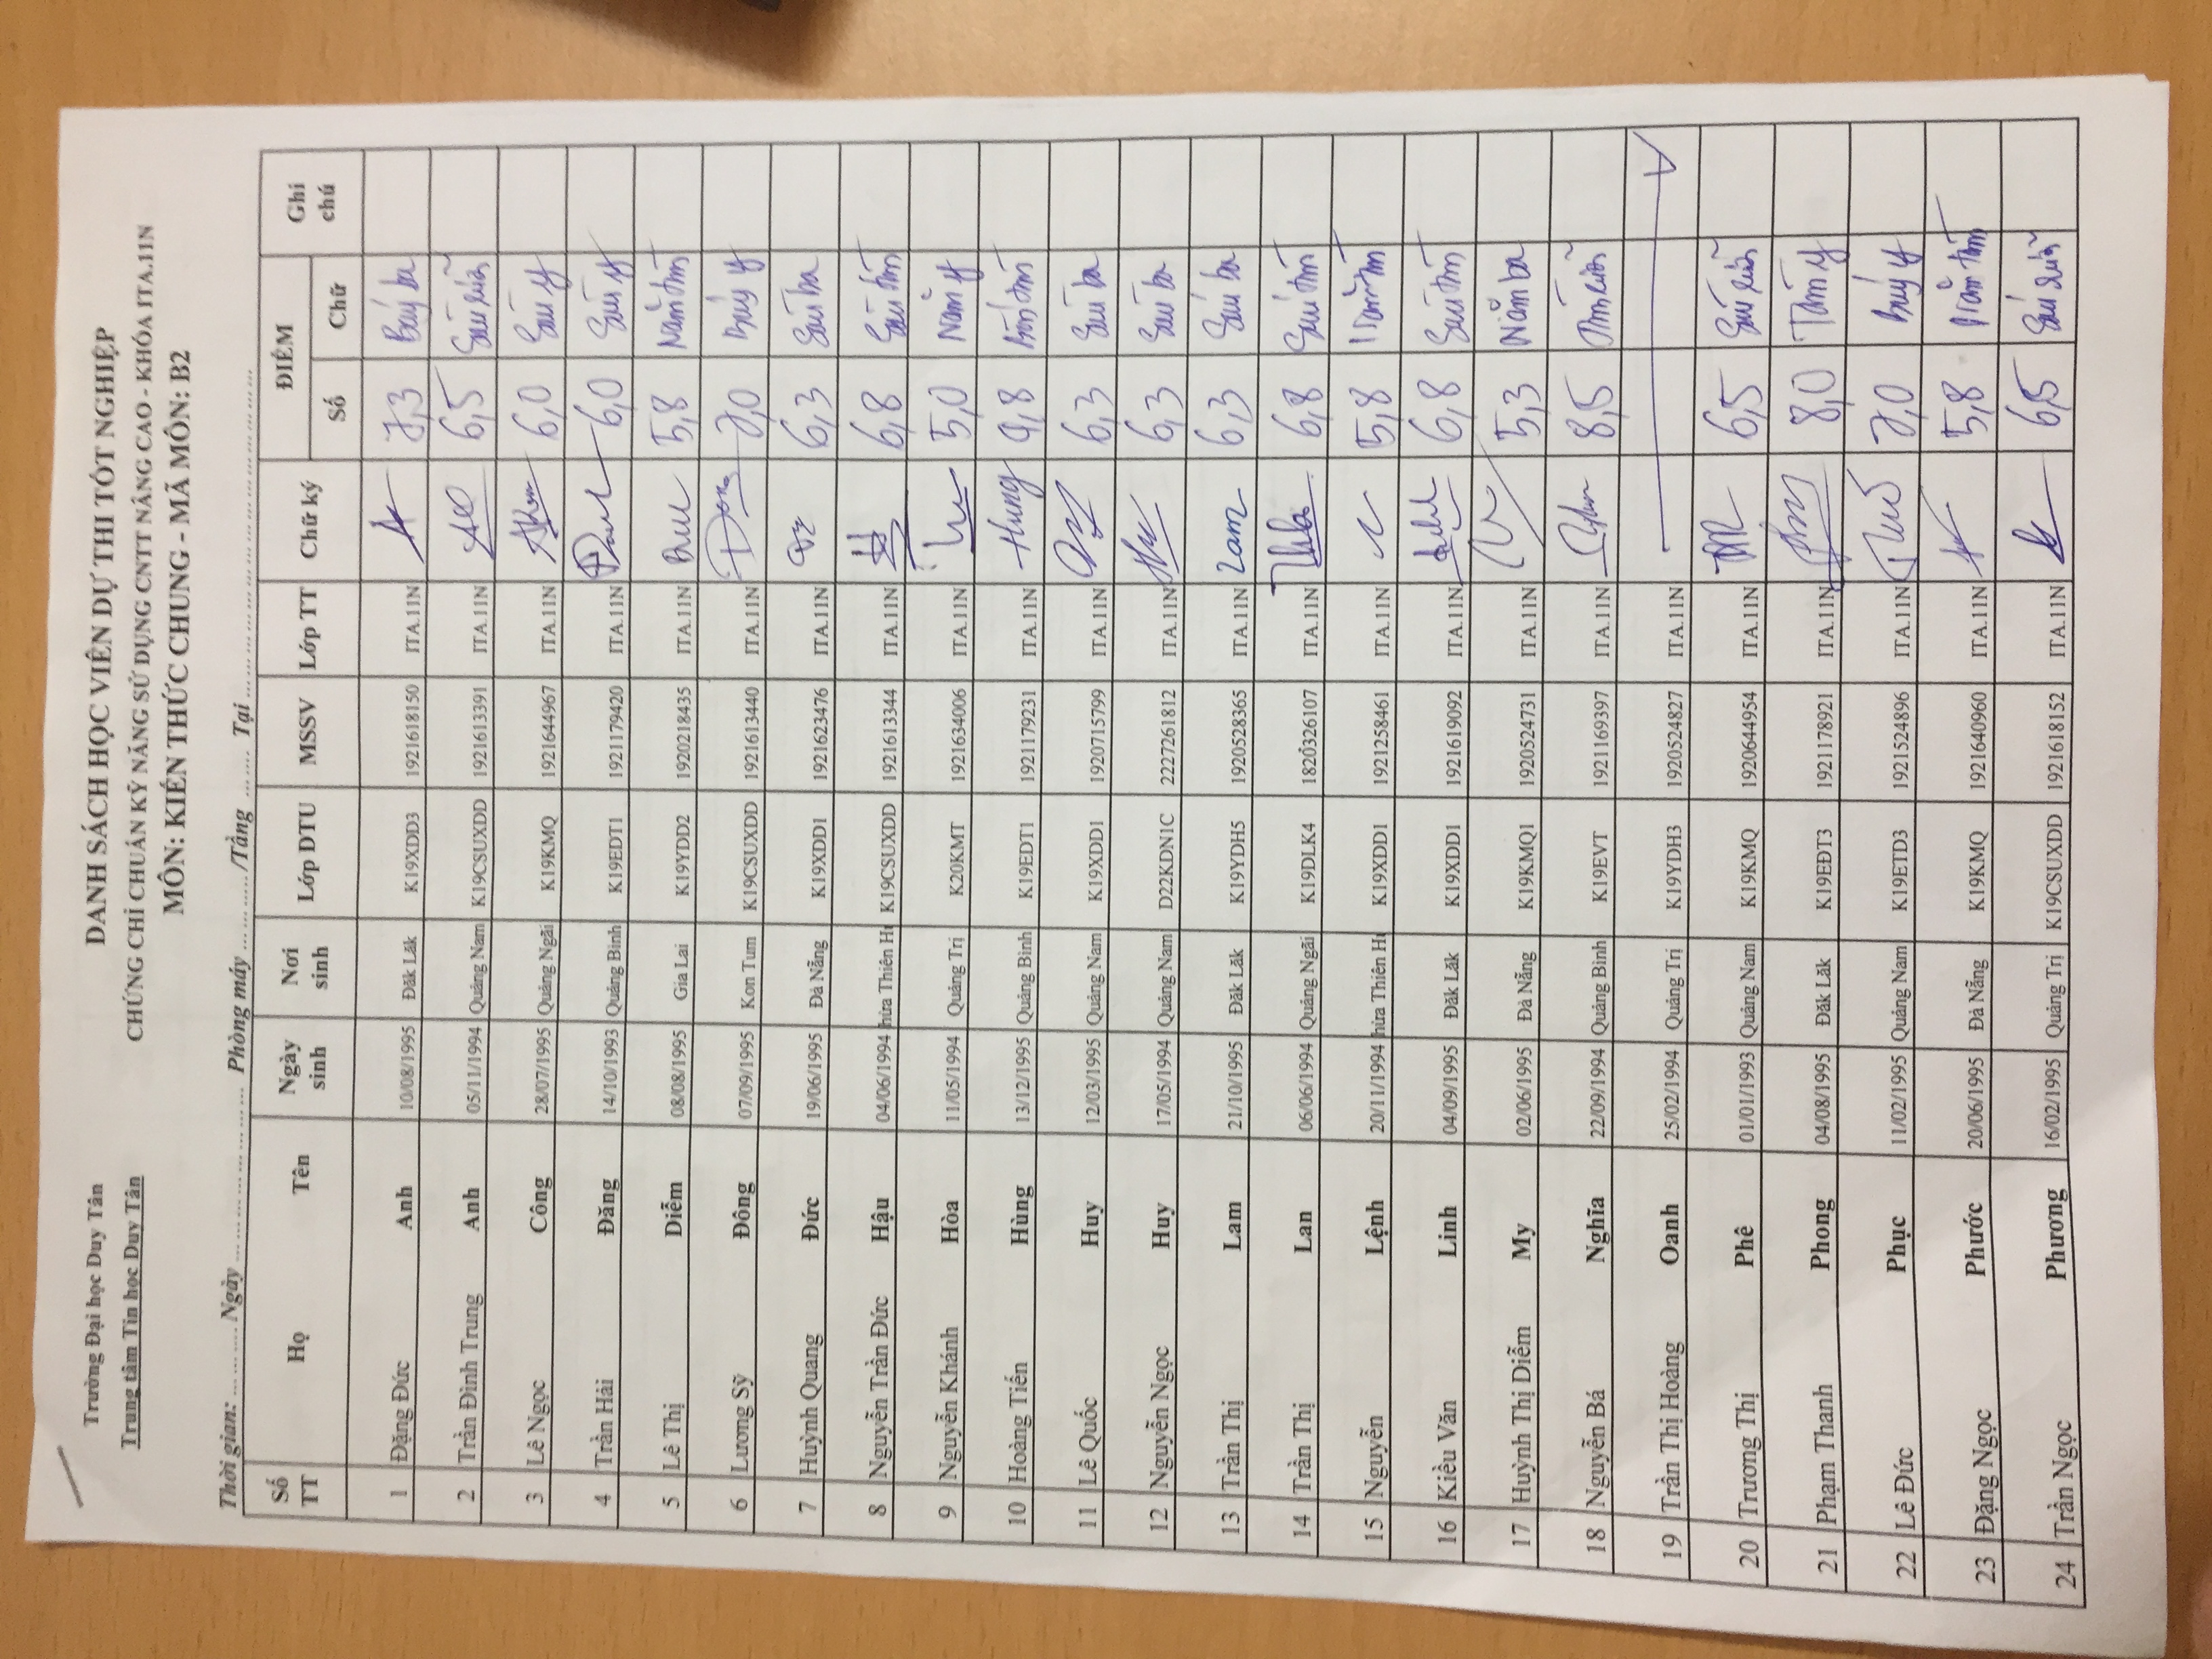 Trường Đại học Duy Tân
Trung tâm Tin học Duy Tân
DANH SÁCH HỌC VIÊN DỰ THI TỐT NGHIỆP
CHỨNG CHỈ CHUẨN KỸ NĂNG SỬ DỤNG CNTT NÂNG CAO - KHÓA ITA.11N
MÔN: KIẾN THỨC CHUNG - MÃ MÔN: B2
Thời gian: ............ Ngày ........................ Phòng máy ............/Tầng ........ Tại ........................
Số TT Họ Tên Ngày sinh Nơi sinh Lớp DTU MSSV Lớp TT Chữ ký ĐIỂM Số Chữ Ghi chú
1 Đặng Đức Anh 10/08/1995 Đăk Lăk K19XDD3 1921618150 ITA.11N 7,3 Bảy ba
2 Trần Đình Trung Anh 05/11/1994 Quảng Nam K19CSUXDD 1921613391 ITA.11N 6,5 Sáu rưỡi
3 Lê Ngọc Công 28/07/1995 Quảng Ngãi K19KMQ 1921644967 ITA.11N 6,0 Sáu y
4 Trần Hải Đăng 14/10/1993 Quảng Bình K19EDT1 1921179420 ITA.11N 6,0 Sáu y
5 Lê Thị Diễm 08/08/1995 Gia Lai K19YDD2 1920218435 ITA.11N 5,8 Năm tám
6 Lương Sỹ Đông 07/09/1995 Kon Tum K19CSUXDD 1921613440 ITA.11N Đông 7,0 Bảy y
7 Huỳnh Quang Đức 19/06/1995 Đà Nẵng K19XDD1 1921623476 ITA.11N 6,3 Sáu ba
8 Nguyễn Trần Đức Hậu 04/06/1994 hừa Thiên Hu K19CSUXDD 1921613344 ITA.11N 6,8 Sáu tám
9 Nguyễn Khánh Hòa 11/05/1994 Quảng Trị K20KMT 1921634006 ITA.11N 5,0 Năm y
10 Hoàng Tiến Hùng 13/12/1995 Quảng Bình K19EDT1 1921179231 ITA.11N Hung 4,8 Bốn tám
11 Lê Quốc Huy 12/03/1995 Quảng Nam K19XDD1 1920715799 ITA.11N 6,3 Sáu ba
12 Nguyễn Ngọc Huy 17/05/1994 Quảng Nam D22KDN1C 2227261812 ITA.11N 6,3 Sáu ba
13 Trần Thị Lam 21/10/1995 Đăk Lăk K19YDH5 1920528365 ITA.11N Lam 6,3 Sáu ba
14 Trần Thị Lan 06/06/1994 Quảng Ngãi K19DLK4 1820326107 ITA.11N 6,8 Sáu tám
15 Nguyễn Lệnh 20/11/1994 hừa Thiên Hu K19XDD1 1921258461 ITA.11N 5,8 Năm tám
16 Kiều Văn Linh 04/09/1995 Đăk Lăk K19XDD1 1921619092 ITA.11N 6,8 Sáu tám
17 Huỳnh Thị Diễm My 02/06/1995 Đà Nẵng K19KMQ1 1920524731 ITA.11N 5,3 Năm ba
18 Nguyễn Bá Nghĩa 22/09/1994 Quảng Bình K19EVT 1921169397 ITA.11N 8,5 Tám rưỡi
19 Trần Thị Hoàng Oanh 25/02/1994 Quảng Trị K19YDH3 1920524827 ITA.11N
20 Trương Thị Phê 01/01/1993 Quảng Nam K19KMQ 1920644954 ITA.11N 6,5 Sáu rưỡi
21 Phạm Thanh Phong 04/08/1995 Đăk Lăk K19EĐT3 1921178921 ITA.11N 8,0 Tám y
22 Lê Đức Phục 11/02/1995 Quảng Nam K19ETD3 1921524896 ITA.11N 7,0 Bảy y
23 Đặng Ngọc Phước 20/06/1995 Đà Nẵng K19KMQ 1921640960 ITA.11N 5,8 Năm tám
24 Trần Ngọc Phương 16/02/1995 Quảng Trị K19CSUXDD 1921618152 ITA.11N 6,5 Sáu rưỡi